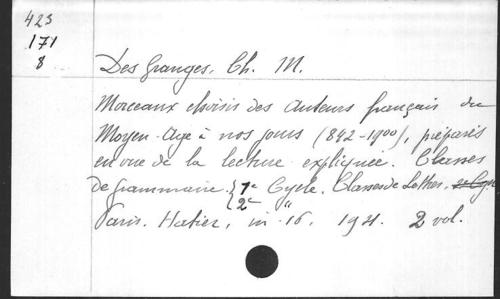 423
171
8
Des Granges, Ch. M.
Morceaux choisis des auteurs français du
Moyen-Age à nos jours (842-1900), préparés
en vue de la lecture expliquée. Classes
de Grammaire {1e Cycle. Classes de Lettres. 2e Cyc
{2e "
Paris. Hatier, in-16. 1921. 2 vol.